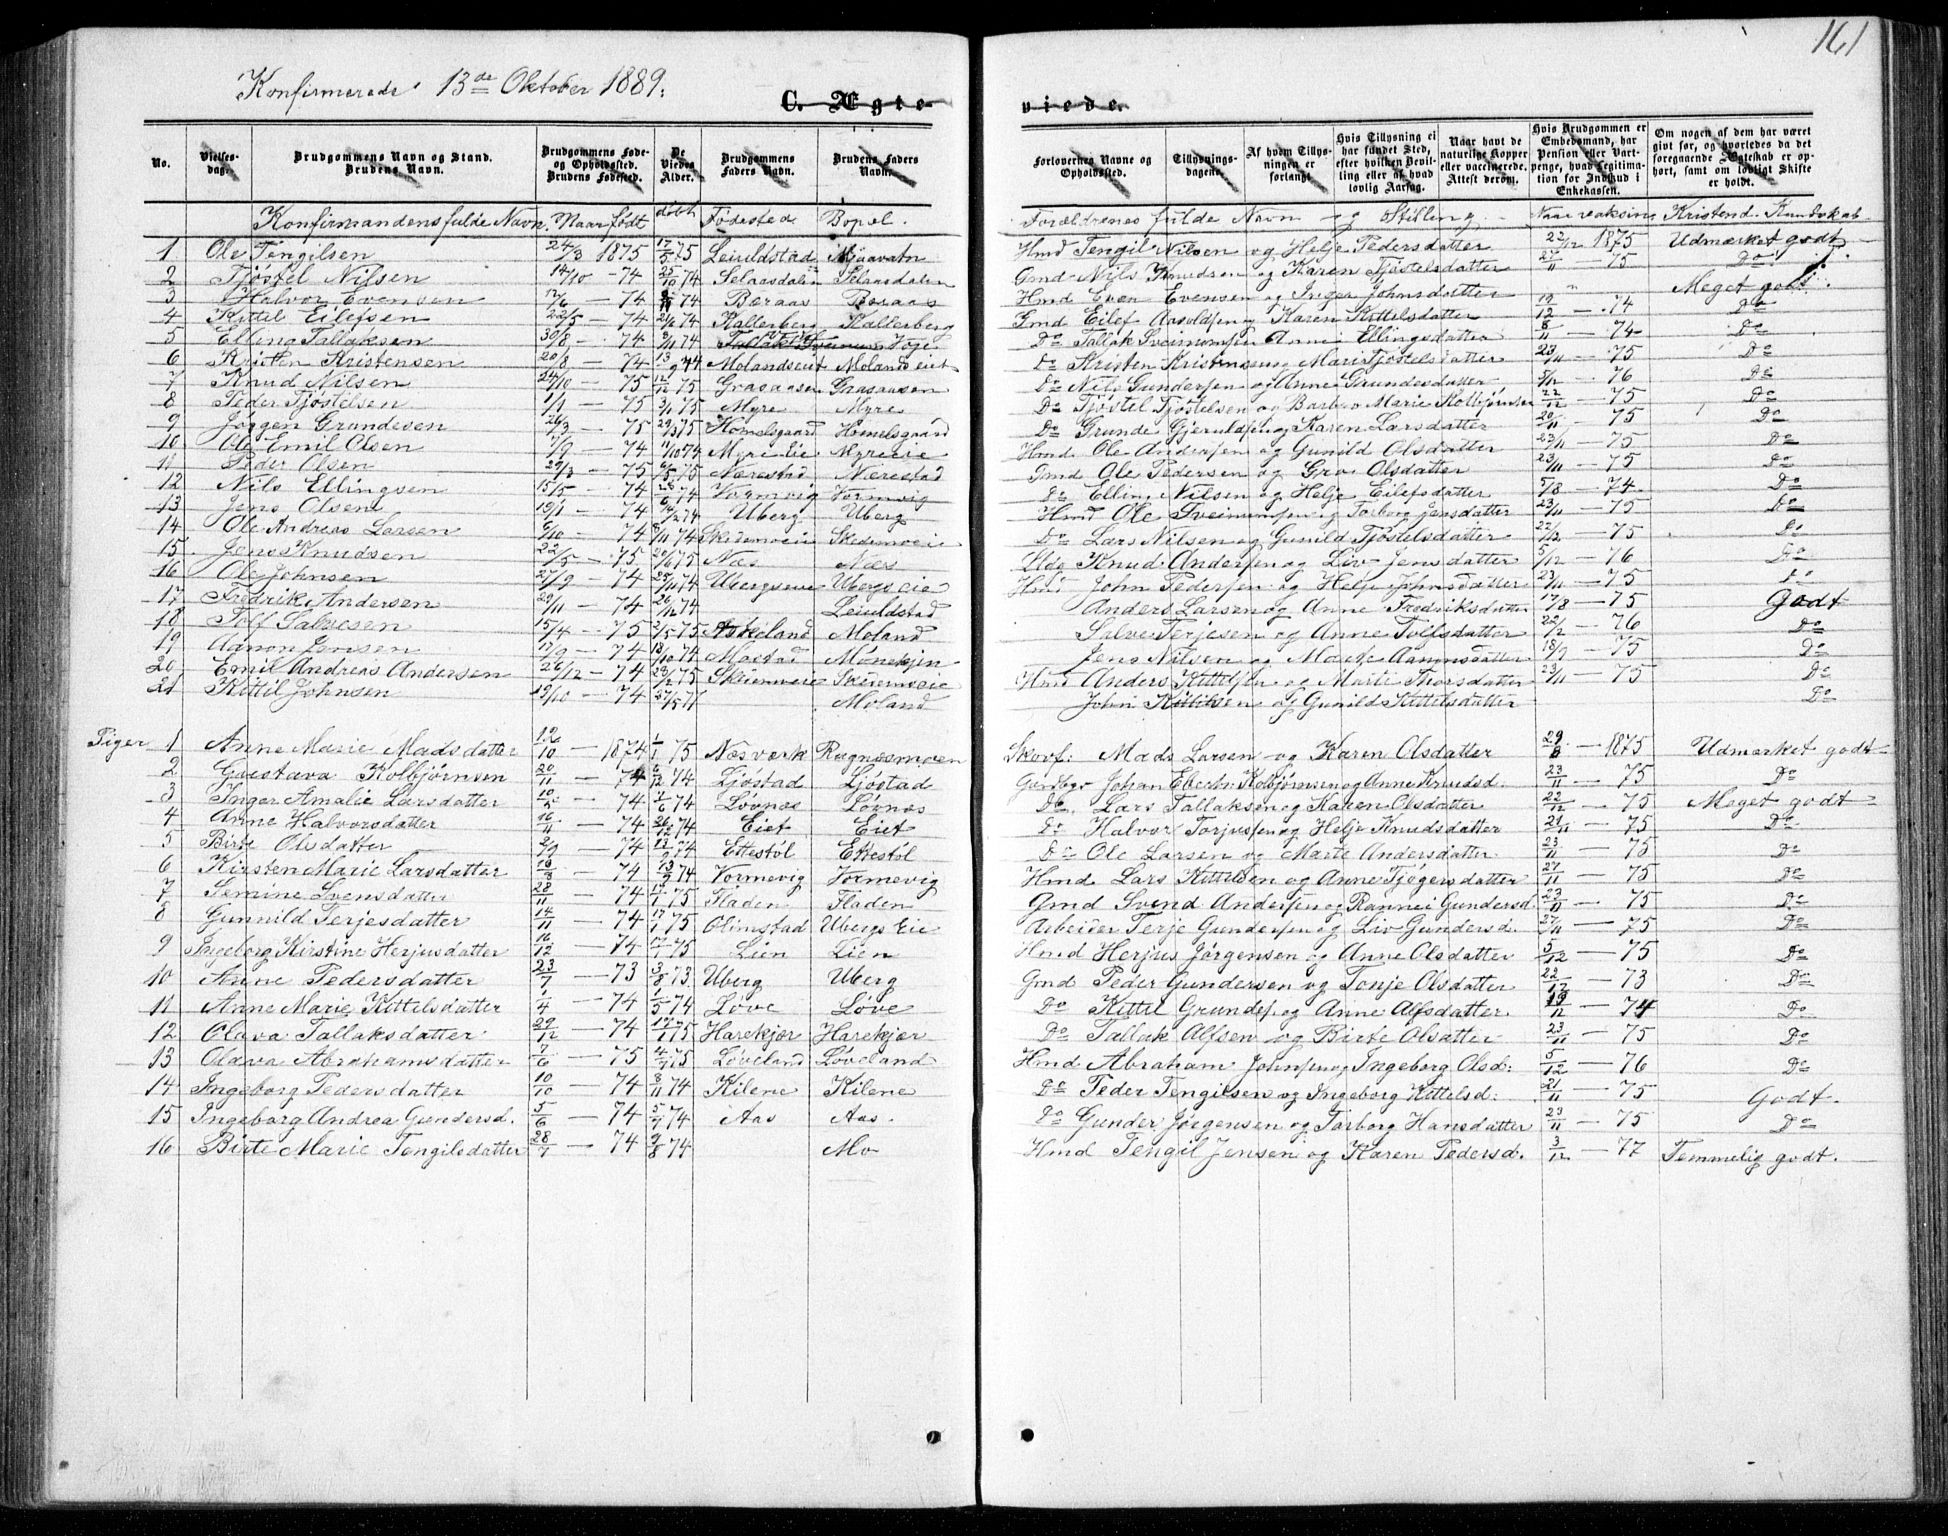 161
Konfirmerede 13de Oktober 1889.
C. Ægte-
viede.
No.
Vielses-
dag.
Brudgommens Navn og Stand.
Brudens Navn.
Brudgommens Føde-
og Opholdssted.
Brudens Fødested.
De
Viedes
Alder.
Brudgommens
Faders Navn.
Brudens Faders
Navn.
Forlovernes Navne og
Opholdssted.
Tillysnings-
dagene.
Af hvem Tillys-
ningen er
forlangt.
Hvis Tillysning ei
har fundet Sted,
efter hvilken Bevil-
ling eller af hvad
lovlig Aarsag.
Naar havt de
naturlige Kopper
eller vaccinerede.
Attest derom.
Hvis Brudgommen er
Embedsmand, har
Pension eller Vart-
penge, hvad Legitima-
tion for Indskud i
Enkekassen.
Om nogen af dem har været
givt før, og hvorledes da det
foregaaende Ægteskab er op-
hørt, samt om lovligt Skifte
er holdt.
Konfirmandens fulde Navn. Naar født døbt Fødested Bopel. Forældrenes fulde Navn og Stilling. Naar vaksine Kristend. Kundskab
1 Ole Tengilsen 24/3 1875 17/5 75 Leiuldstad Mjaavatn Hmd Tengil Nilsen og Helje Pedersdatter 22/12 1875 Udmærket godt
2 Tjøstel Nilsen 14/10 - 74 25/10 74 Selaasdalen Selaasdalen Gmd Nils Knudsen og Karen Tjøstelsdatter 75 Do
3 Halvor Evensen 12/6 - 74 74 Beraas Beraas Hmd Even Evensen og Inger Johnsdatter " Meget godt
4 Kittel Eilefsen 22/5 - 74 21/6 74 Kallerberg Kallerberg Gmd Eilef Aasoldsen og Karen Kittelsdatter 19/12 - 74 Do
5 Elling Tallaksen 30/8 - 74 74 Voje Do Tallak Sveinumsen Anne Ellingsdatter 8/11 - 74 Do
6 Kristen Kristensen 20/8 - 74 13/9 74 Molandseiet Molandseiet Do Kristen Kristensen og Maris Tjøstelsdatter 23/11 - 75 Do
7 Knud Nilsen 24/10 - 75 12/12 75 Grasaasen Grasaasen Do Nils Gundersen og Anne Grundesdatter 5/12 - 76 Do
8 Peder Tjøstelsen 1/1 - 75 75 Myre Myre Do Tjøstel Tjøstelsen og Barbro Marie Kolbjørnsen 22/12 - 75 Do
9 Jørgen Grundesen 26/3 - 75 29/3 75 Homelsgaard Homelsgaard Do Grunde Gjeruldsen og Karen Larsdatter 20/11 75 Do
10 Ole Emil Olsen 7/9 - 74 11/10 74 Myre eie Myreeie Hmd Ole Andersen og Gunild Olsdatter 23/11 - 75 Do
11 Peder Olsen 29/3 - 75 6/5 75 Nærestad Nærestad Gmd Ole Pedersen og Gro Olsdatter 23/11 - 75 Do
12 Nils Ellingsen 15/5 - 74 28/6 74 Vormvig Vormvig Do Elling Nilsen og Helje Eilefsdatter 5/8 - 74 Do
13 Jens Olsen 19/1 - 74 74 Uberg Uberg Hmd Ole Sveinumsen og Torborg Jensdatter 23/11 - 75 Do
14 Ole Andreas Larsen 6/10 - 74 8/11 74 Skedemoeie Skedemoeie Do Lars Nilsen og Gunild Tjøstelsdatter 22/12 - 75 Do
15 Jens Knudsen 22/5 - 75 20/6 75 Næs Næs Knud Andersen og Liv Jensdatter 5/12 - 76 Do
16 Ole Johnsen 27/9 - 74 25/10 74 Ubergseie Ubergseie Hmd John Pedersen og Helje Johnsdatter 23/11 - 75 Do
17 Fredrik Andersen 29/11 - 74 26/12 74 Leiuldstad Anders Larsen og Anne Fredriksdatter 17/8 - 75 Godt
18 Tolf Salvesen 15/4 - 75 2/5 75 Askeland Moland Salve Terjesen og Anne Tolfsdatter 22/2 - 76 Do
19 Aanon Jensen 17/9 - 74 18/10 74 Mostad Mønekjen Jens Nilsen og Marte Aanonsdatter 18/9 - 75 Do
20 Emil Andreas Andersen 26/12 - 74 28/2 75 Skeiemoeie Skeiemoeie Hmd Anders Kittelsen og Marte Thorsdatter 23/11 - 75 Do
21 Kittil Johnsen 19/10 - 74 Moland John Kittilsen og Gunild Kittelsdatter Do
Piger 1 Anne Marie Madsdatter 12/10 - 1874 1/1 75 Næsverk Ragnesmoen Skovf. Mads Larsen og Karen Olsdatter 29/8 - 1875 Udmærket godt
2 Gustava Kolbjørnsen 20/11 - 74 6/12 74 Ljøstad Ljøstad Gaardbr Johan Ebertn Kolbjørnsen og Anne Knudsd. 23/11 - 75 Do
3 Inger Amalie Larsdatter 10/5 - 74 7/6 74 Løvnæs Løvnæs Do Lars Tallaksen og Karen Olsdatter 22/12 - 75 Meget godt
4 Anne Halvorsdatter 16/11 - 74 26/12 74 Eiet Eiet Do Halvor Torjusen og Helje Knudsdatter 21/11 - 75 Do
5 Birte Olsdatter 2/9 - 74 13/9 74 Ettestøl Ettestøl Do Ole Larsen og Marte Andersdatter 23/11 - 75 Do
6 Kirsten Marie Larsdatter 16/8 - 74 13/9 74 Vormevig Vormevig Hmd Lars Kittelsen og Anne Tjøgersdatter 27/11 - 75 Do
7 Semine Svensdatter 28/11 - 74 17/1 75 Fladen Fladen Gmd Svend Andersen og Rannei Gundersd 23/11 - 75 Do
8 Gunnild Terjesdatter 14/11 - 74 17/1 75 Olimstad Ubergs Eie Arbeider Terje Gundersen og Liv Gundersd. 27/11 - 75 Do
9 Ingeborg Kirstine Herjusdatter 16/12 - 74 75 Lien Lien Hmd Herjus Jørgensen og Anne Olsdatter 5/12 - 75 Do
10 Anne Pedersdatter 23/7 - 73 3/8 73 Uberg Uberg Gmd Peder Gundersen og Tonje Olsdatter 22/12 - 73 Do
11 Anne Marie Kittelsdatter 74 1/5 74 Løve Løve Do Kittel Grundesen og Anne Alfsdatter 19/12 - 74 Do
12 Olava Tallaksdatter 29/12 - 74 75 Harekjær Harekjær Do Tallak Alfsen og Birte Olsatter 23/11 - 75 Do
13 Olava Abrahamsdatter 7/6 - 75 4/7 75 Løveland Løveland Hmd Abraham Johnsen og Ingeborg Olsd: 5/12 - 76 Do
14 Ingeborg Pedersdatter 10/10 - 74 8/11 74 Kilene Kilene Do Peder Tengilsen og Ingeborg Kittelsd: 21/11 - 75 Godt.
15 Ingeborg Andrea Gundersd. 5/6 - 74 5/7 74 Aas Aas. Do Gunder Jørgensen og Torborg Hansdatter 23/11 - 75 Do
16 Birte Marie Tengilsdatter 28/7 - 74 9/8 74 Mo Hmd Tengil Jensen og Karen Pedersd. 3/12 - 77 Temmelig godt.